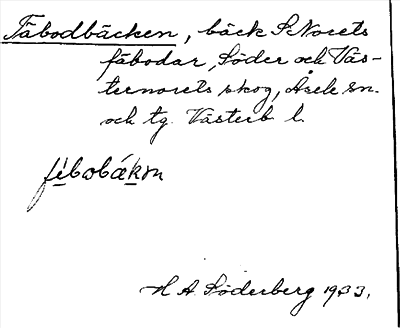 Fäbodbäcken, bäck S. Norets
fäbodar, Söder och Väs-
ternorets skog, Åsele sn.
och tg. Västerb. l.
H A Söderberg 1933.